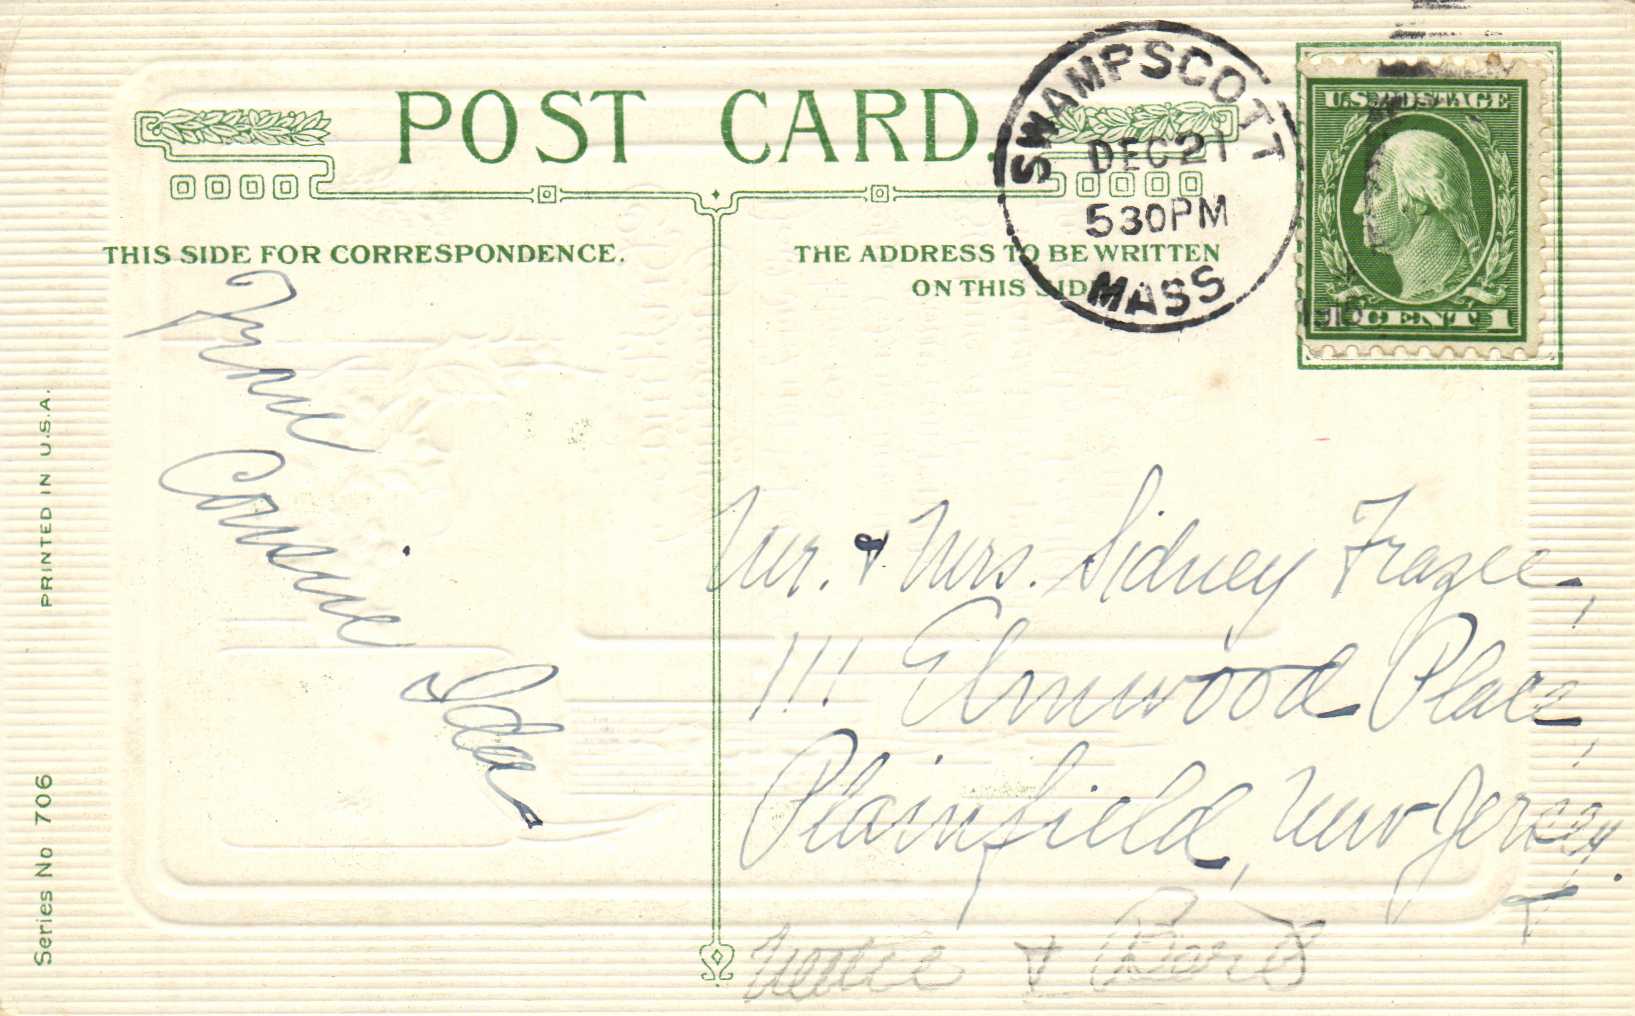 POST CARD.
THIS SIDE FOR CORRESPONDENCE.
THE ADDRESS TO BE WRITTEN
ON THIS SIDE
SWAMPSCOTT
DEC 21
530PM
MASS
U.S. POSTAGE
1 CENT 1
From
Cousin
Ida
Mr. & Mrs. Sidney Frazee,
111 Elmwood Place,
Plainfield, New Jersey.
&
PRINTED IN U.S.A.
Series No 706